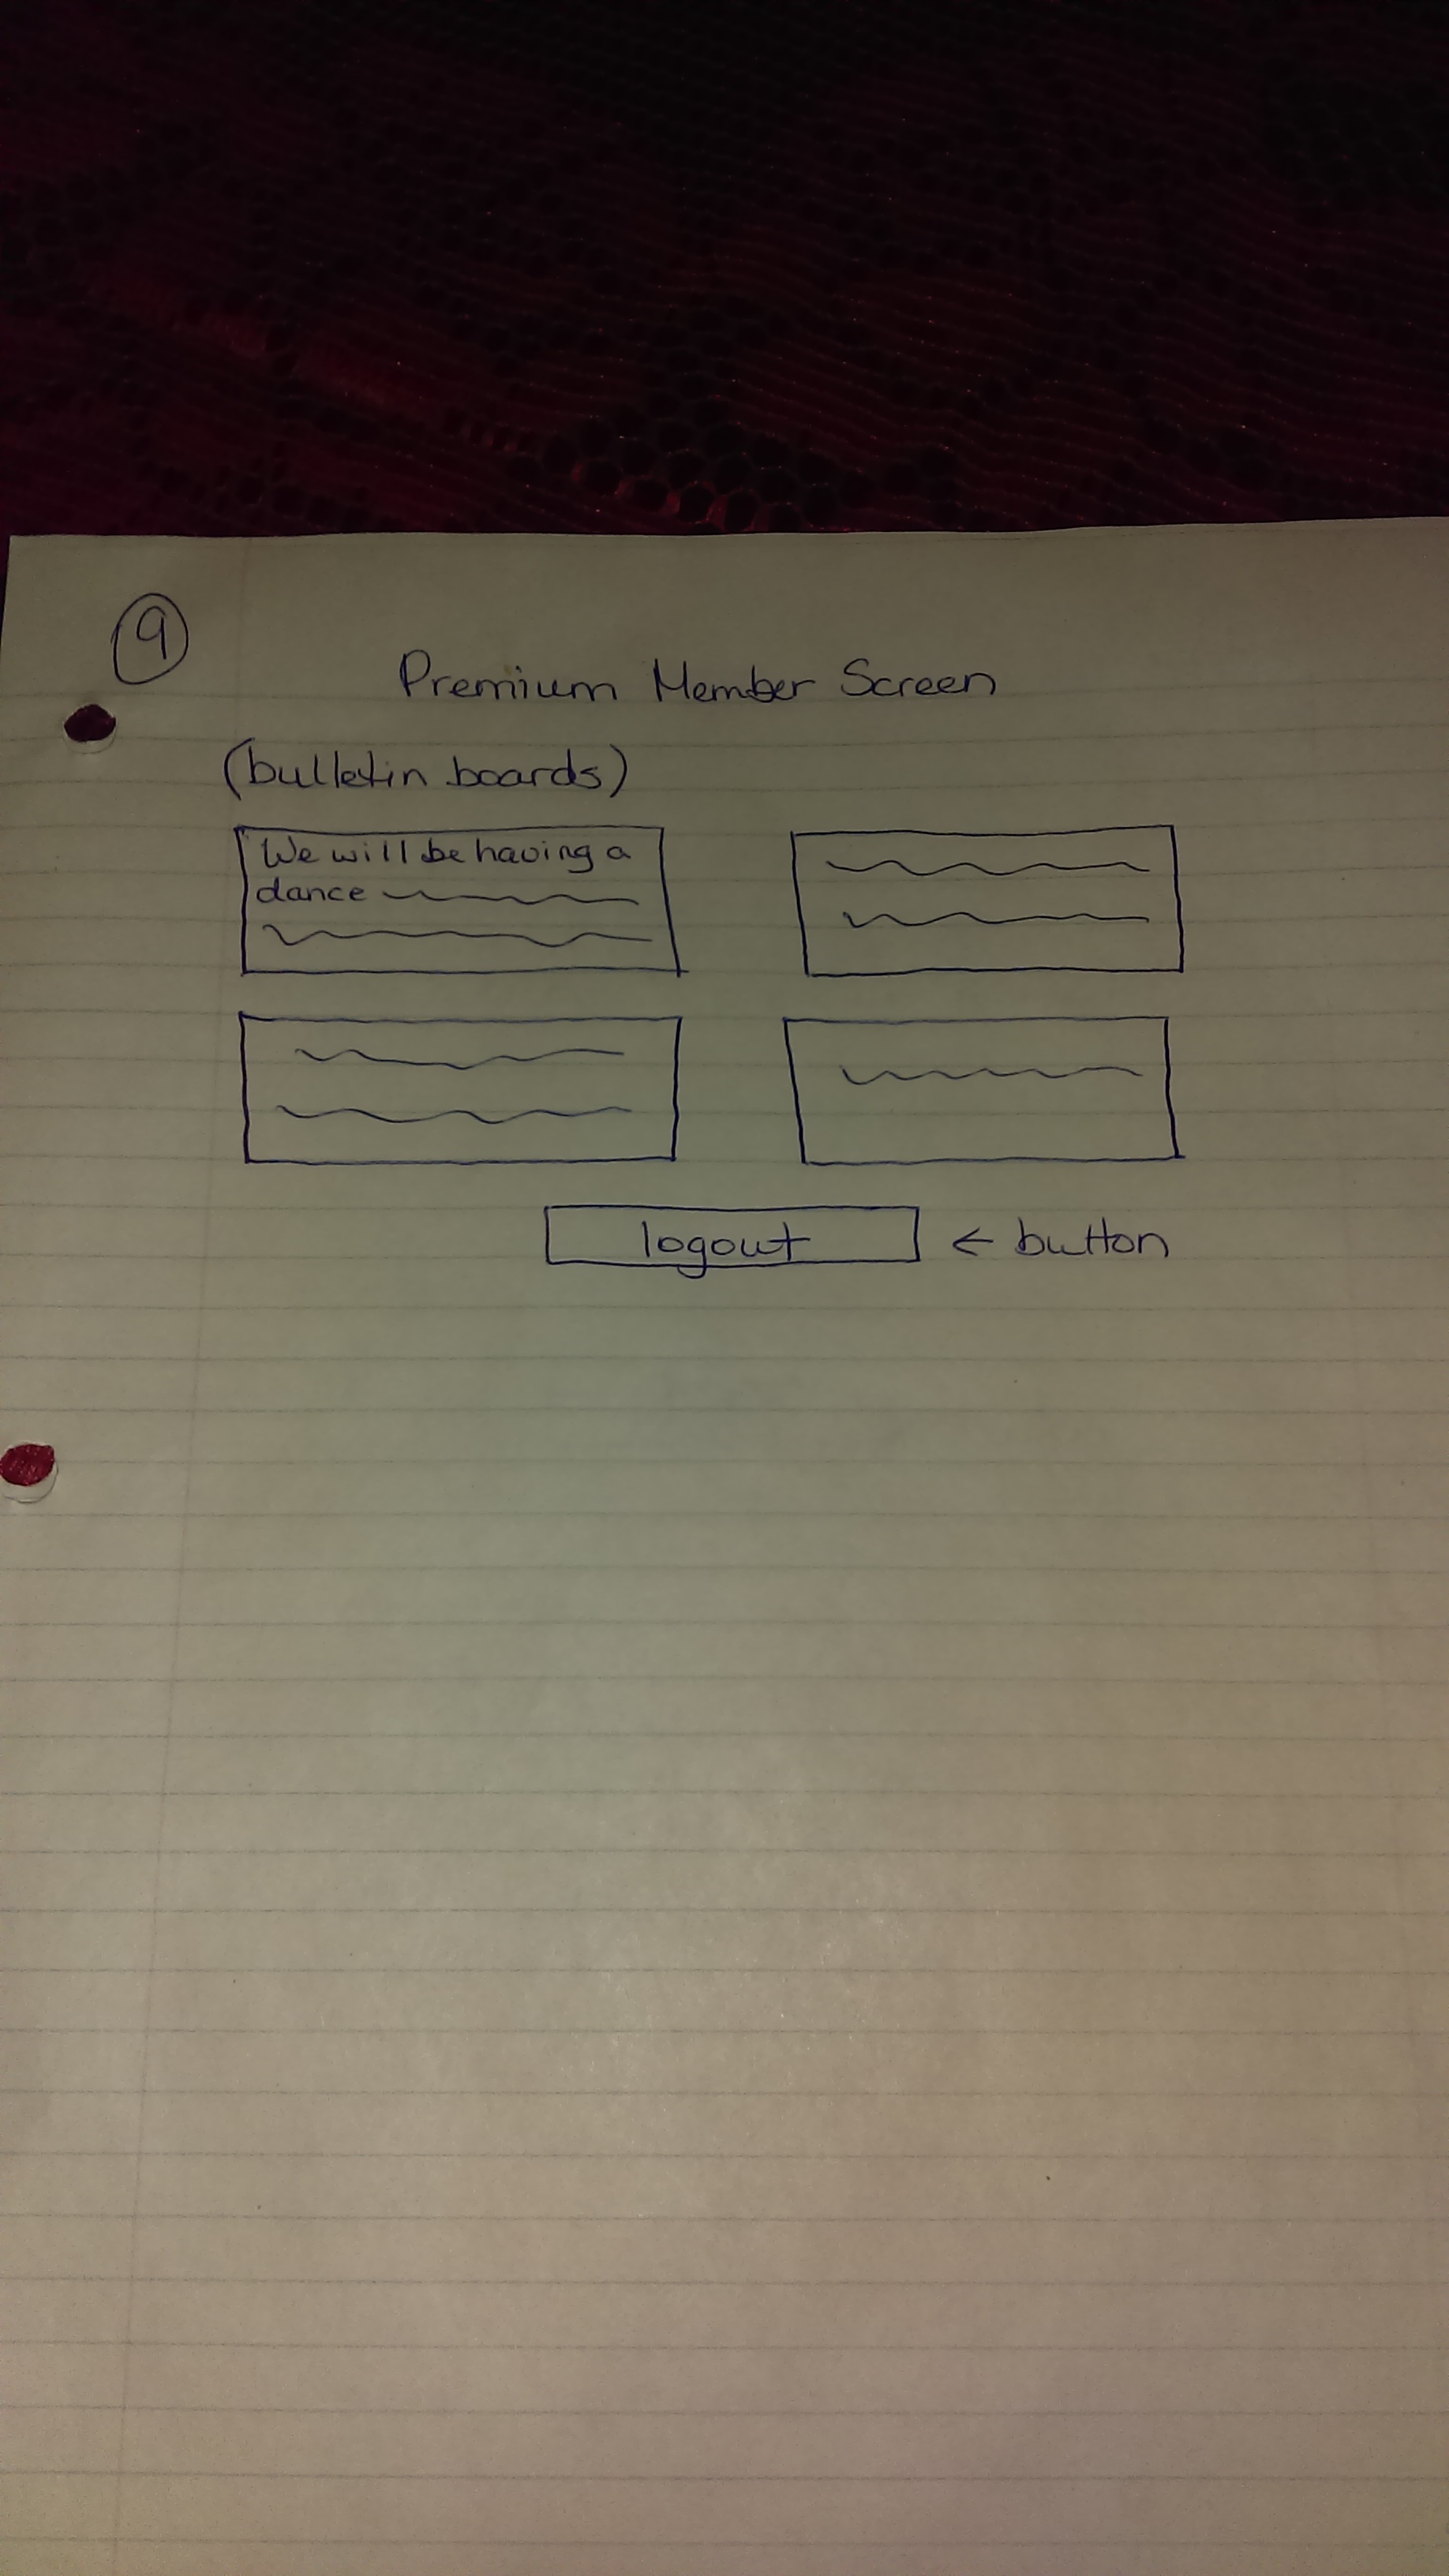 9
Premium Member Screen
(bulletin boards)
We will be having a
dance
logout ← button